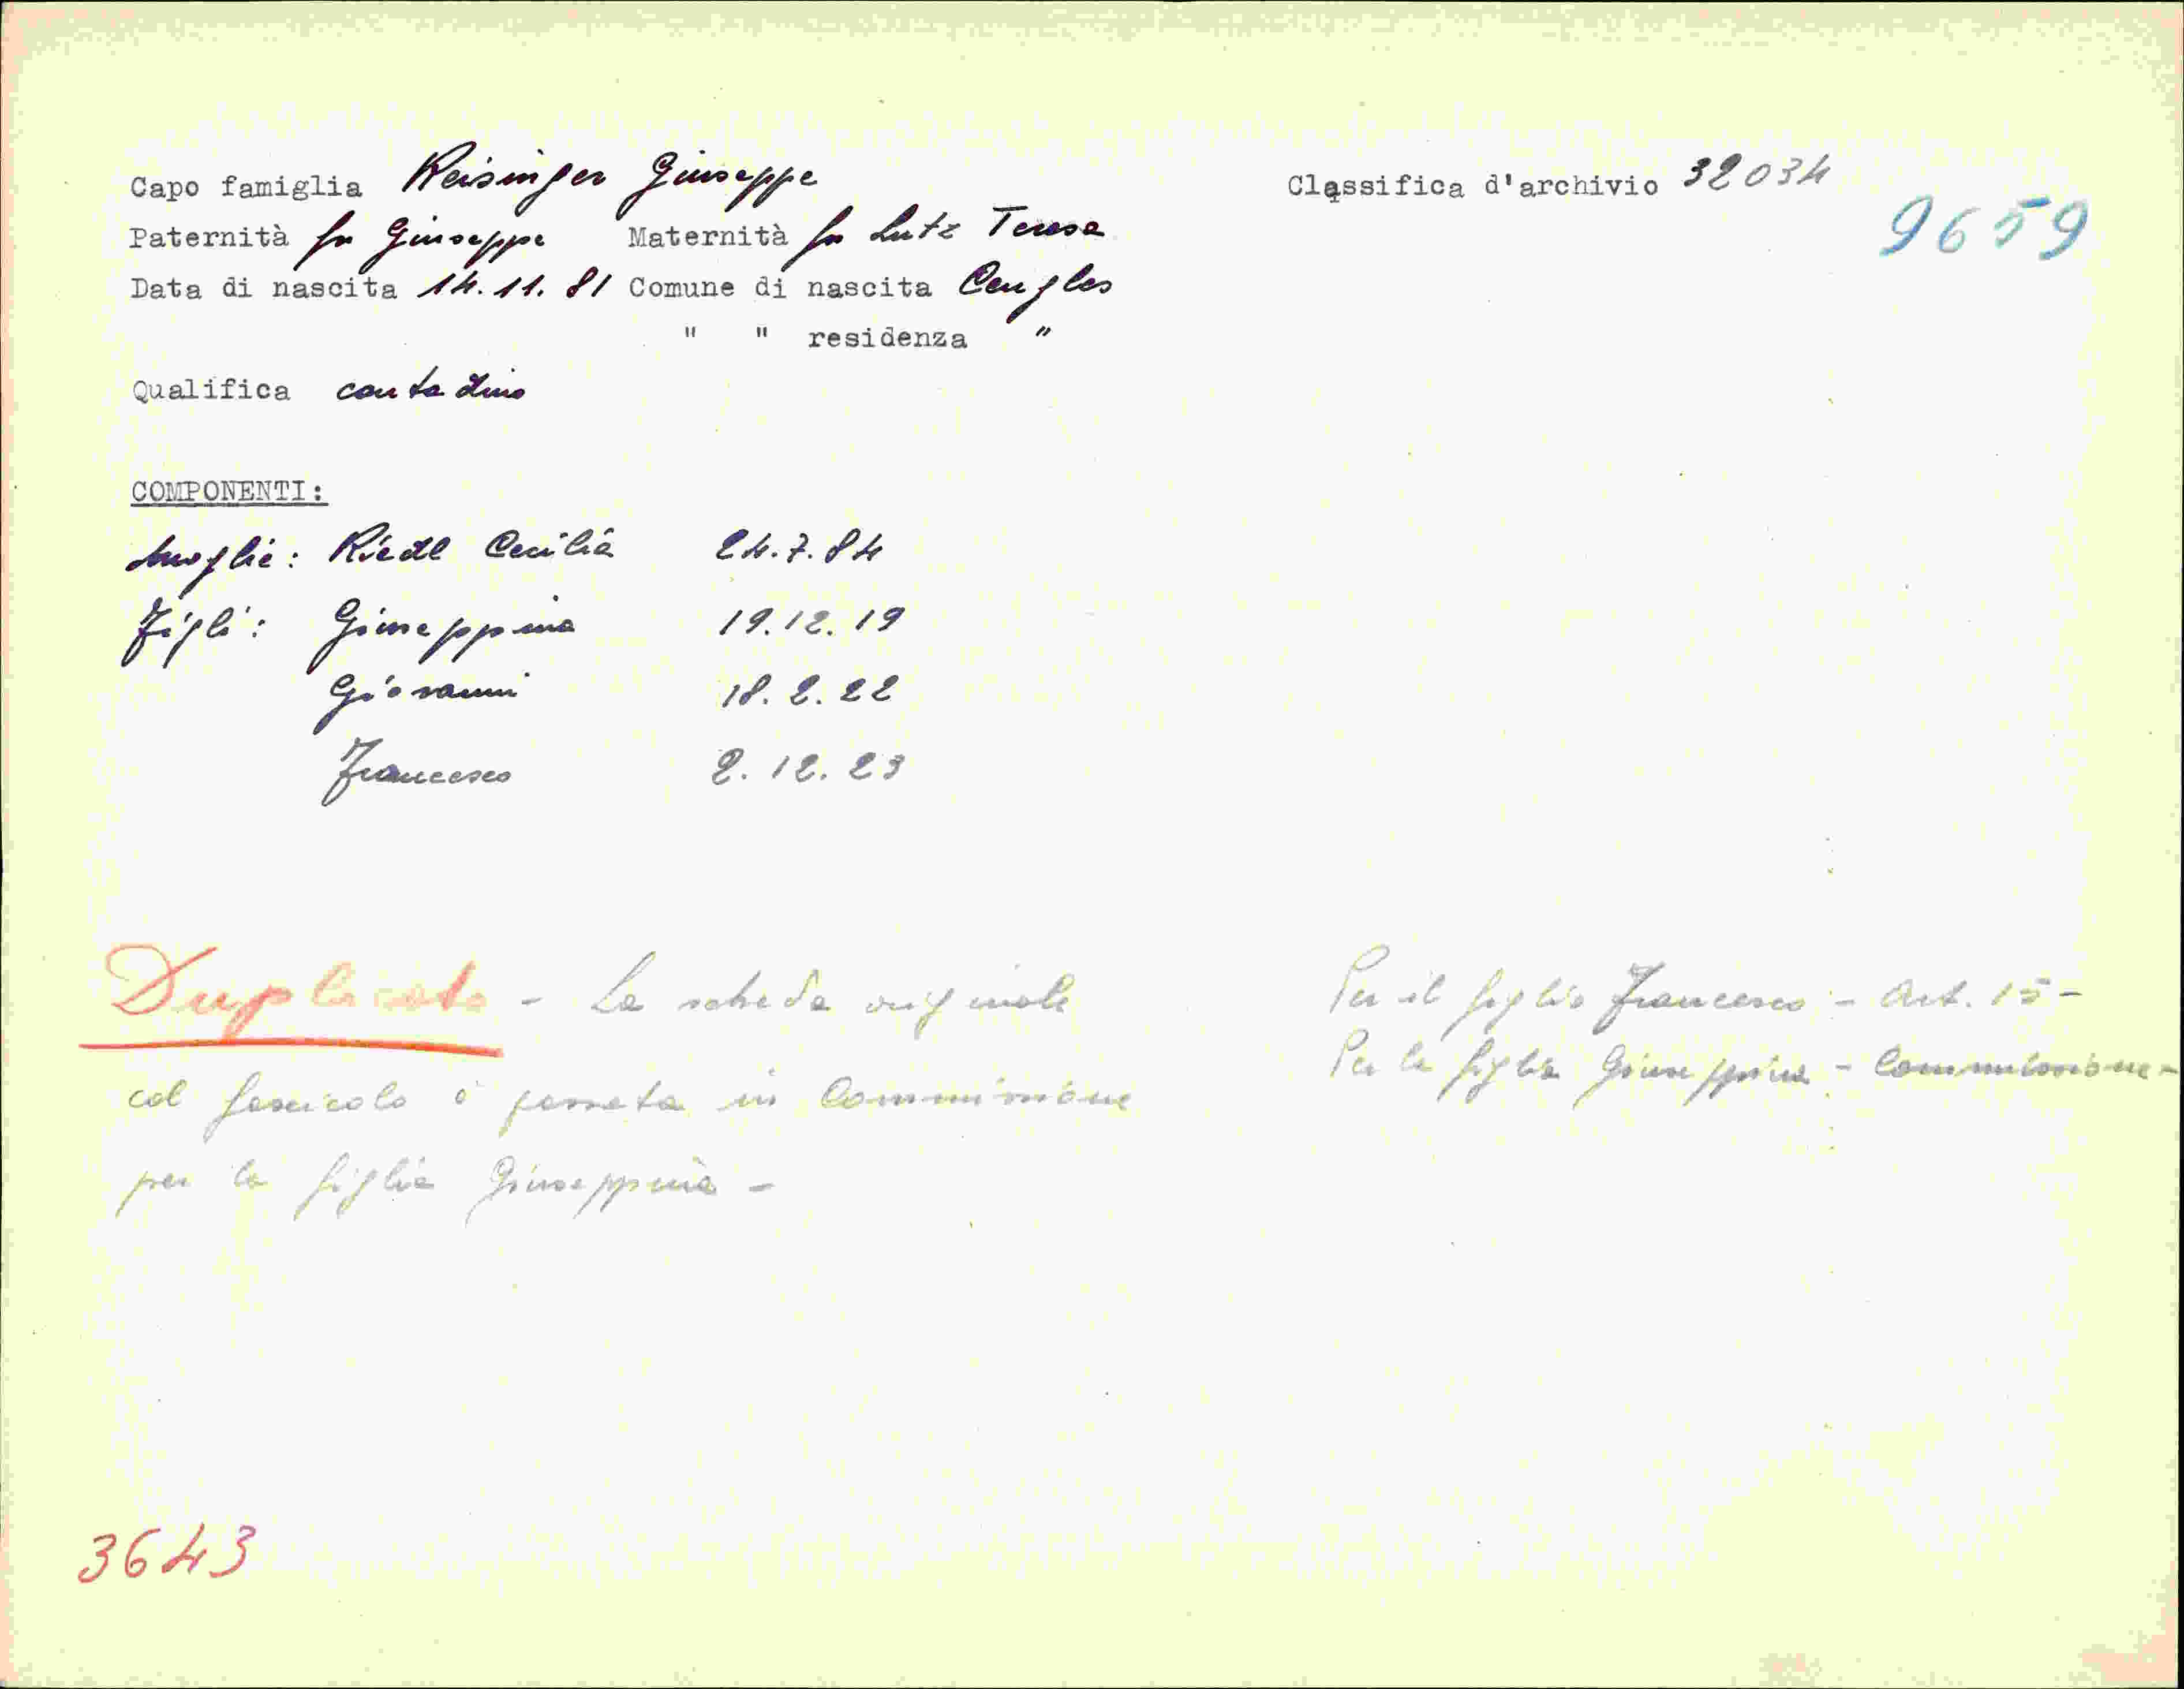 Capo famiglia Reisinger Giuseppe
Classifica d'archivio 32034
9659
Paternità fu Giuseppe Maternità fu Lutz Teresa
Data di nascita 14.11.81 Comune di nascita Cengles
" " residenza "
Qualifica contadino
COMPONENTI:
Moglie: Riedl Cecilia 24.7.84
Figli: Giuseppina 19.12.19
Giovanni 18.2.22
Francesco 2.12.23
Duplicato - La scheda originale
col fascicolo è passata in Commissione
per la figlia Giuseppina -
Per il figlio Francesco - Art. 15 -
Per la figlia Giuseppina - Commissione -
3643